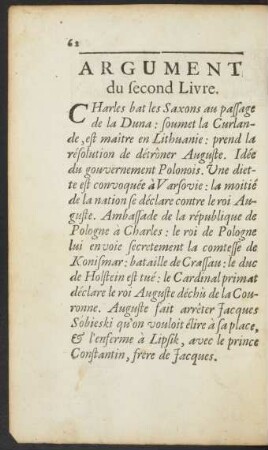 62
ARGUMENT
du ſecond Livre.
CHarles bat les Saxons au paſſage
de la Duna: ſoumet la Curlan-
de, est maître en Lithuanie: prend la
réſolution de détrôner Auguſte. Idée
du gouvernement Polonois. Une diet-
te est convoquée à Varſovie: la moitié
de la nation ſe déclare contre le roi Au-
guſte. Ambaſſade de la république de
Pologne à Charles: le roi de Pologne
lui envoie ſecretement la comteſſe de
Koniſmar: bataille de Craſſau: le duc
de Holſtein est tué: le Cardinal primat
déclare le roi Auguſte déchû de la Cou-
ronne. Auguſte fait arrêter Jacques
Sobieski qu'on vouloit élire à ſa place,
& l'enferme à Lipſik, avec le prince
Conſtantin, frère de Jacques.